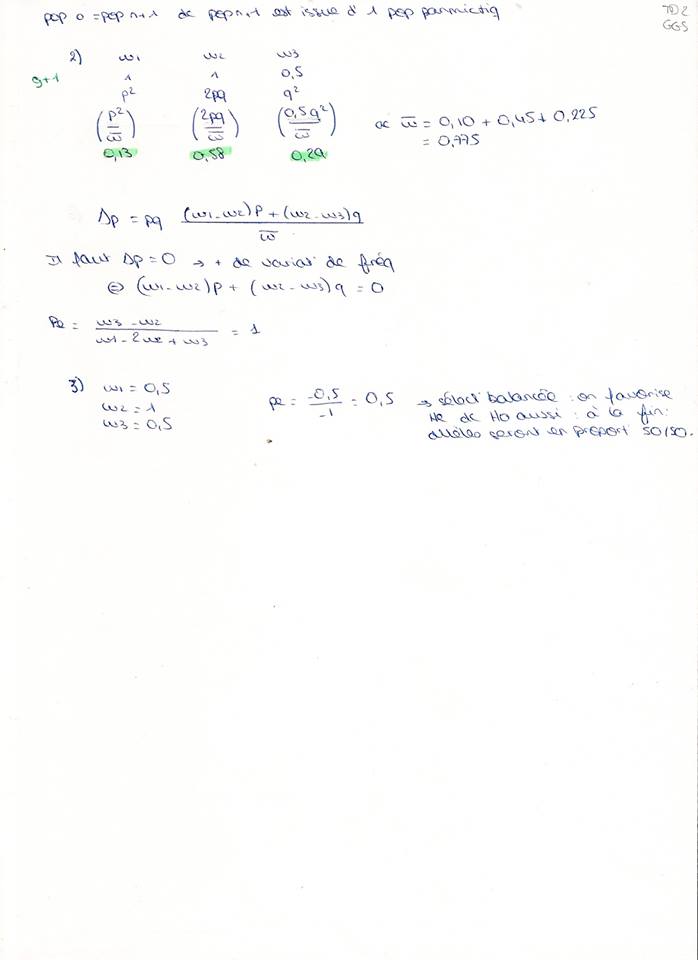 pop 0 = pop n+1 dc pop n+1 est issue d' 1 pop panmictiq
TD2
GGS
2) w1 w2 w3
g+1 1 1 0,5
p² 2pq q²
(p²/w̅) (2pq/w̅) (0,5q²/w̅) ac w̅ = 0,10 + 0,45 + 0,225
= 0,775
0,13 0,58 0,29
Δp = pq ((w1-w2)p + (w2-w3)q)/w̅
Il faut Δp = 0 → + de variat° de fréq
⇔ (w1-w2)p + (w2-w3)q = 0
pe = (w3-w2)/(w1-2w2+w3) = 1
3) w1 = 0,5
w2 = 1
w3 = 0,5
pe = -0,5/-1 = 0,5 → sélect° balancée : on favorise
He dc Ho aussi : à la fin :
allèles seront en proport° 50/50.